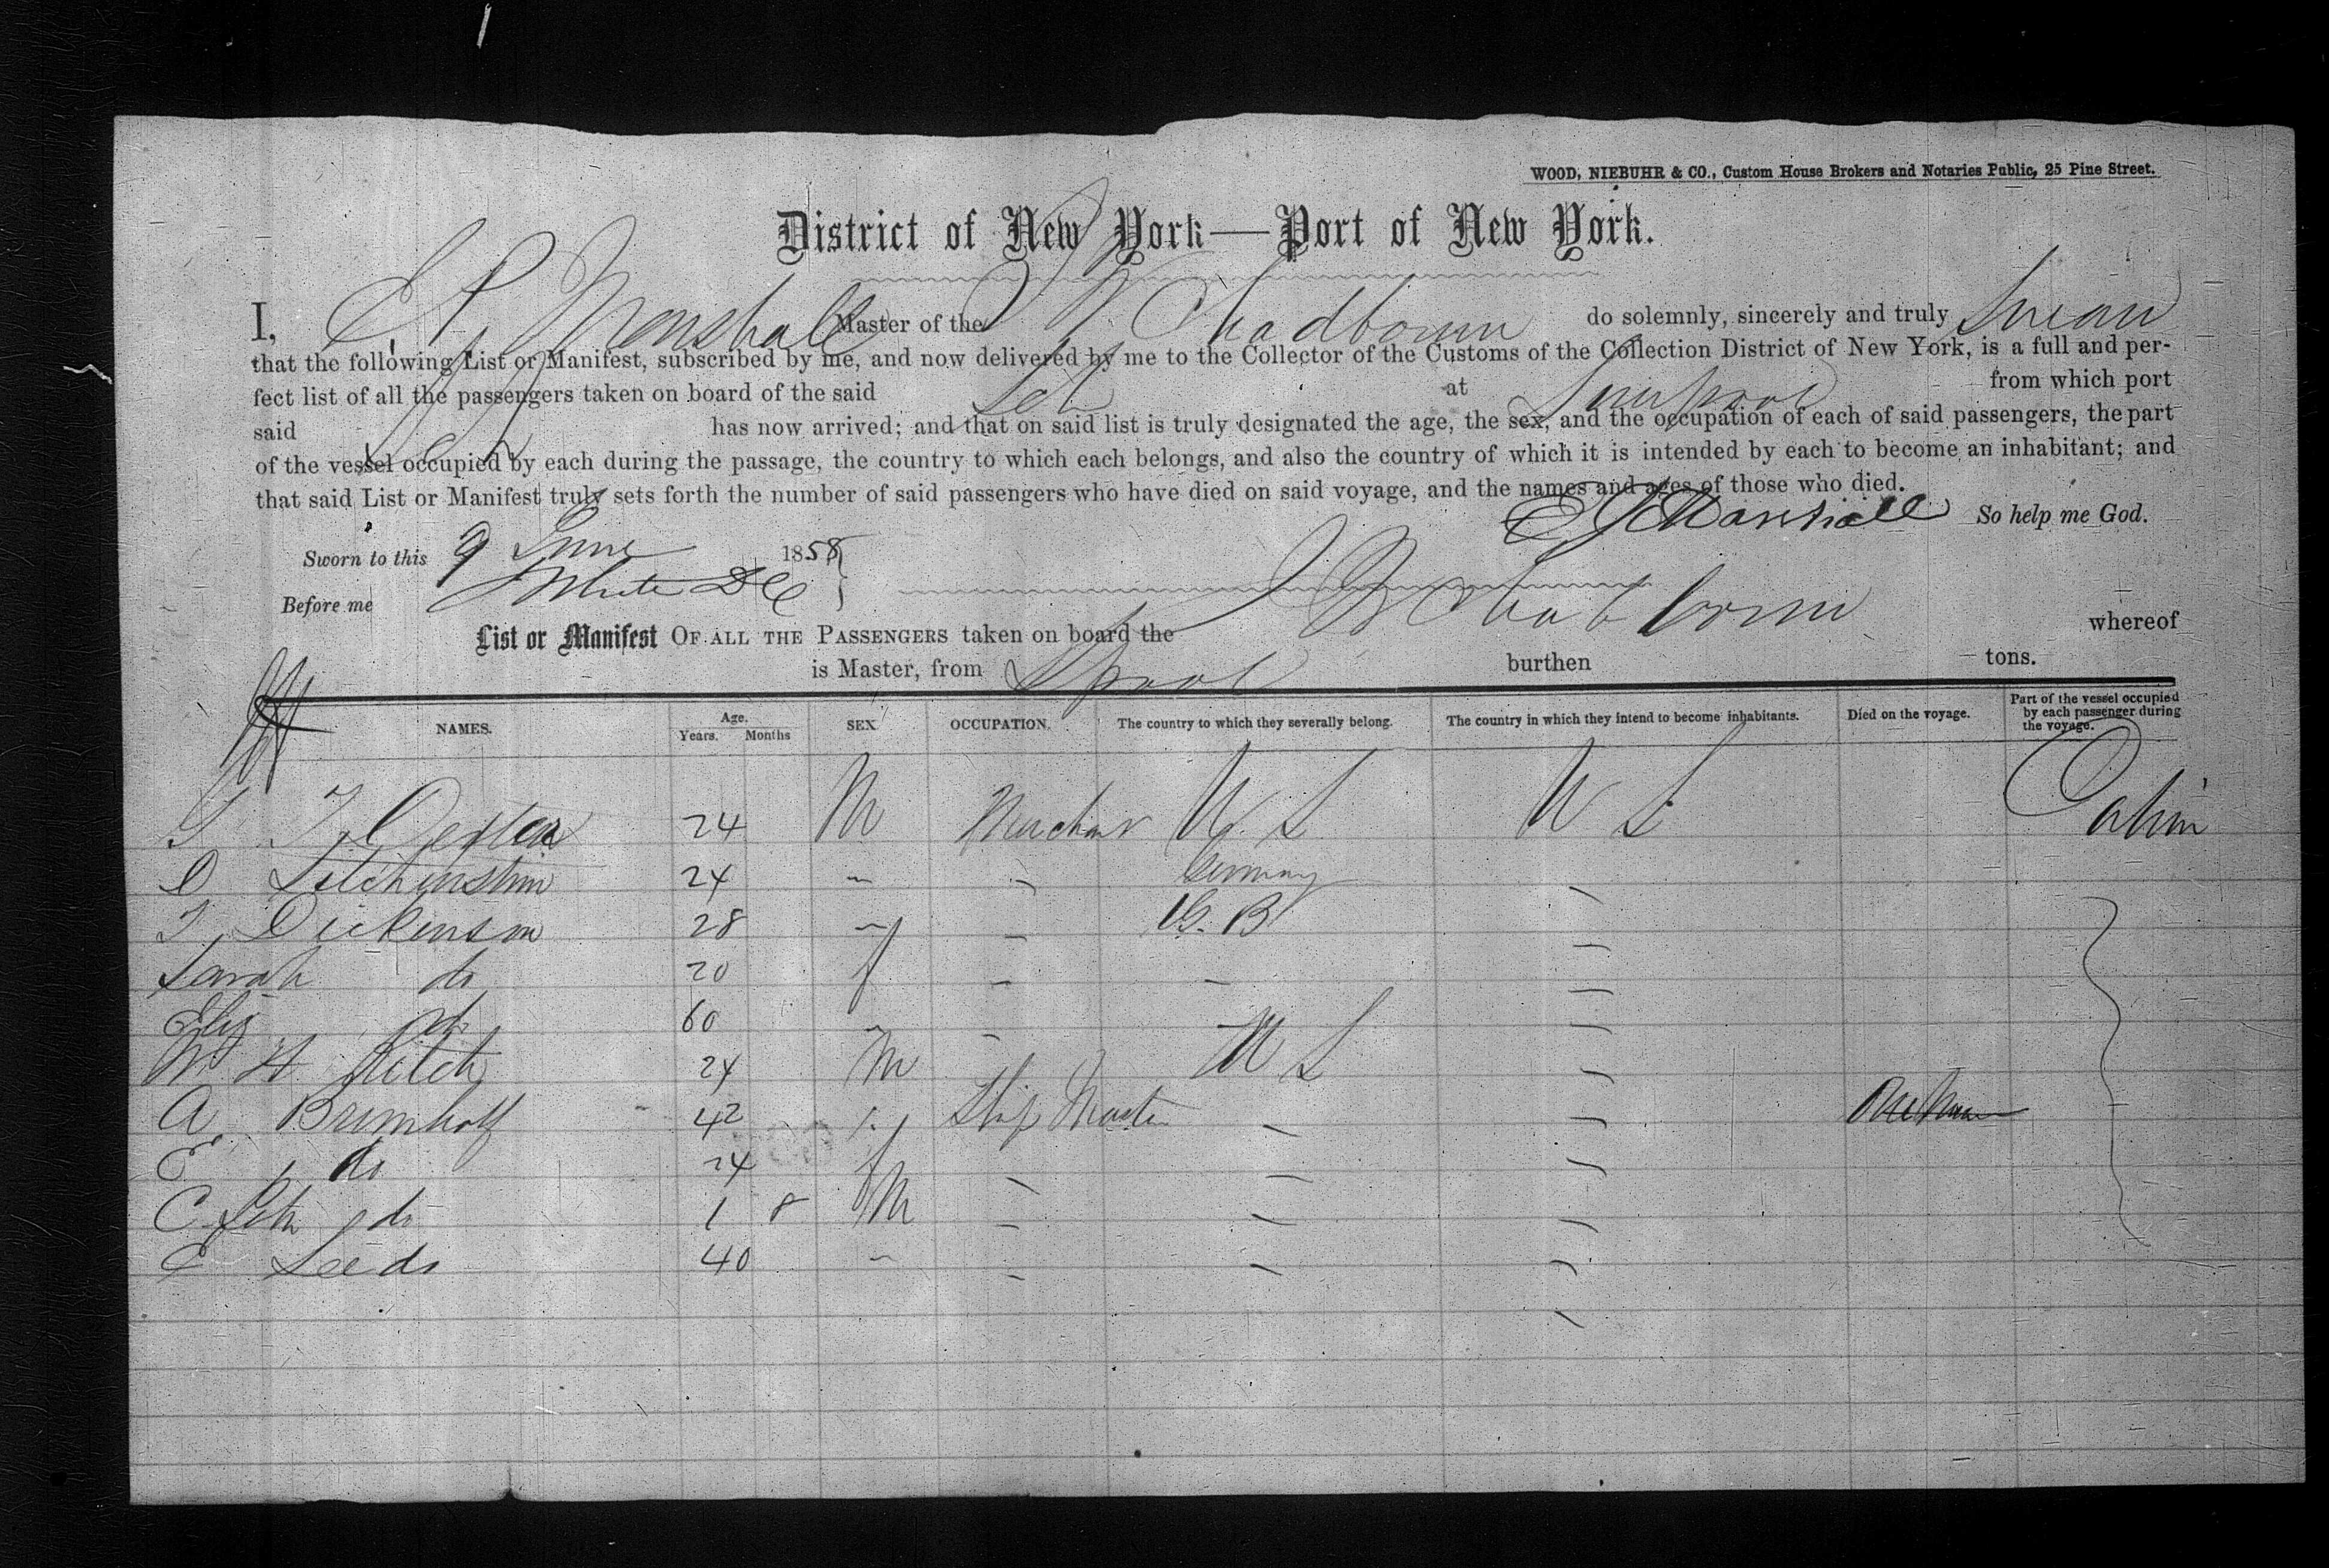 WOOD, NIEBUHR & CO., Custom House Brokers and Notaries Public, 25 Pine Street.
District of New York—Port of New York.
I, Marshall Master of the Chadbourn do solemnly, sincerely and truly Swear
that the following List or Manifest, subscribed by me, and now delivered by me to the Collector of the Customs of the Collection District of New York, is a full and per-
fect list of all the passengers taken on board of the said at Liverpool from which port
said has now arrived; and that on said list is truly designated the age, the sex, and the occupation of each of said passengers, the part
of the vessel occupied by each during the passage, the country to which each belongs, and also the country of which it is intended by each to become an inhabitant; and
that said List or Manifest truly sets forth the number of said passengers who have died on said voyage, and the names and ages of those who died.
Marshall So help me God.
Sworn to this 9 June 1858
Before me White
List or Manifest OF ALL THE PASSENGERS taken on board the whereof
is Master, from Lpool burthen tons.
NAMES. Age. Years. Months SEX OCCUPATION. The country to which they severally belong. The country in which they intend to become inhabitants. Died on the voyage. Part of the vessel occupied by each passenger during the voyage.
24 M Merchant U S U S Cabin
24 " " Germany "
Dickinson 28 " " G. B "
Sarah do 20 f " " "
Eliz do 60 " " "
24 M U S "
A 42 " Ship Master " "
E do 24 f " " "
C do 1 8 M " " "
E Leeds 40 " " " "